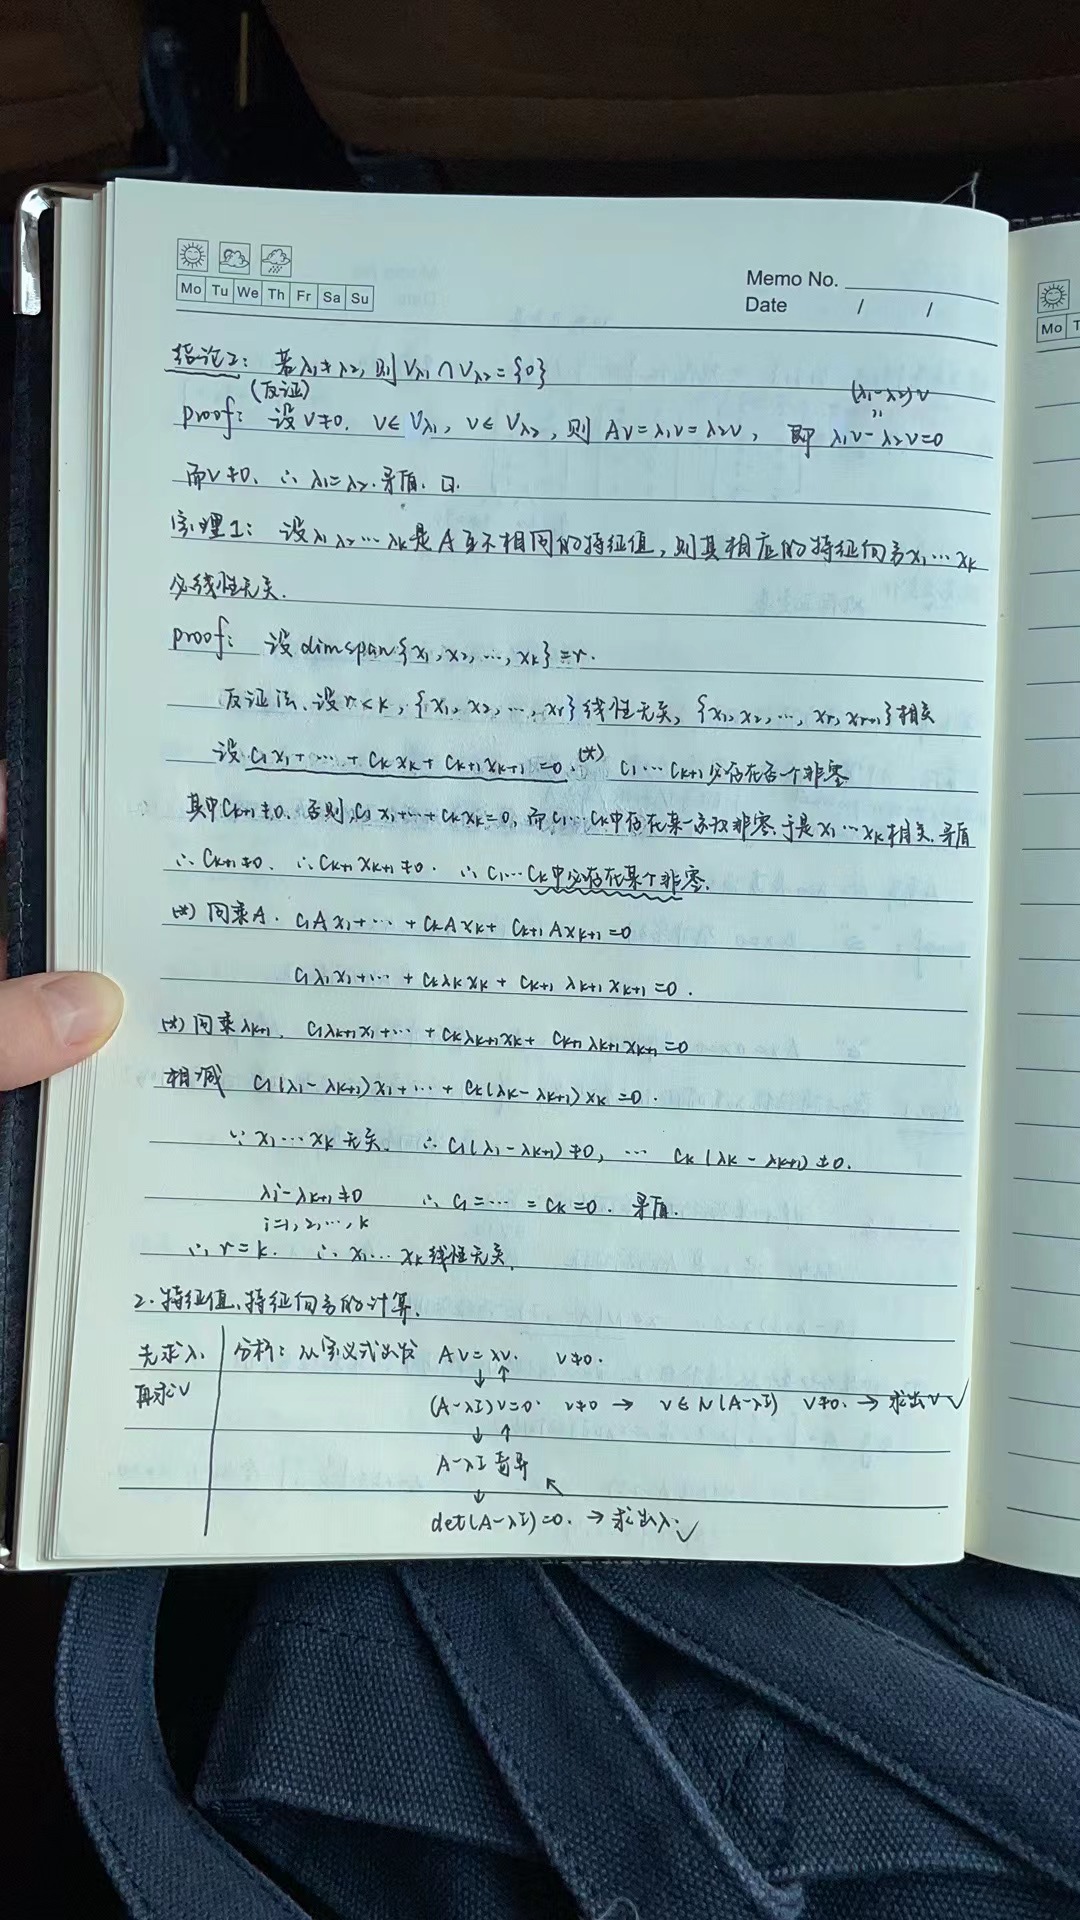 Mo Tu We Th Fr Sa Su
Memo No.
Date / /
Mo T
结论2: 若λ₁≠λ₂, 则 Vλ₁∩Vλ₂={0}
(反证)
(λ₁-λ₂)v
proof: 设v≠0, v∈Vλ₁, v∈Vλ₂, 则 Av=λ₁v=λ₂v, 即 λ₁v-λ₂v=0
而v≠0, ∴λ₁=λ₂.矛盾. 口.
定理1: 设λ₁ λ₂…λk是A互不相同的特征值, 则其相应的特征向量x₁…xk
必线性无关.
proof: 设dimspan{x₁,x₂,…,xk}=r.
反证法, 设r<k, {x₁,x₂,…,xr}线性无关, {x₁,x₂,…,xr,xr+1}相关
设 c₁x₁+…+ckxk+ck+1xk+1=0.(*) c₁…ck+1必存在一个非零
其中ck+1≠0, 否则,c₁x₁+…+ckxk=0, 而c₁…ck中存在某一系数非零,于是x₁…xk相关,矛盾
∴ck+1≠0. ∴ck+1xk+1≠0. ∴c₁…ck中必存在某个非零.
(*)同乘A. c₁Ax₁+…+ckAxk+ck+1Axk+1=0
c₁λ₁x₁+…+ckλkxk+ck+1λk+1xk+1=0.
(*)同乘λk+1, c₁λk+1x₁+…+ckλk+1xk+ck+1λk+1xk+1=0
相减 c₁(λ₁-λk+1)x₁+…+ck(λk-λk+1)xk=0.
∵x₁…xk无关. ∴c₁(λ₁-λk+1)≠0, … ck(λk-λk+1)≠0.
λi-λk+1≠0 ∴c₁=…=ck=0. 矛盾.
i=1,2,…,k
∴r=k. ∴x₁…xk线性无关.
2.特征值、特征向量的计算.
先求λ, 分析: 从定义式出发 Av=λv. v≠0.
↓↑
再求v (A-λI)v=0. v≠0 → v∈N(A-λI) v≠0. → 求出v✓
↓↑
A-λI 奇异
↓ ↖
det(A-λI)=0. → 求出λ.✓